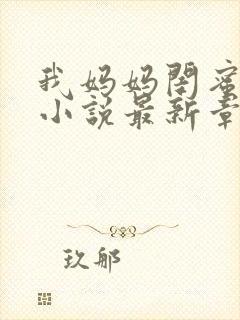 我妈妈閨蜜
小說最新章
玖郍